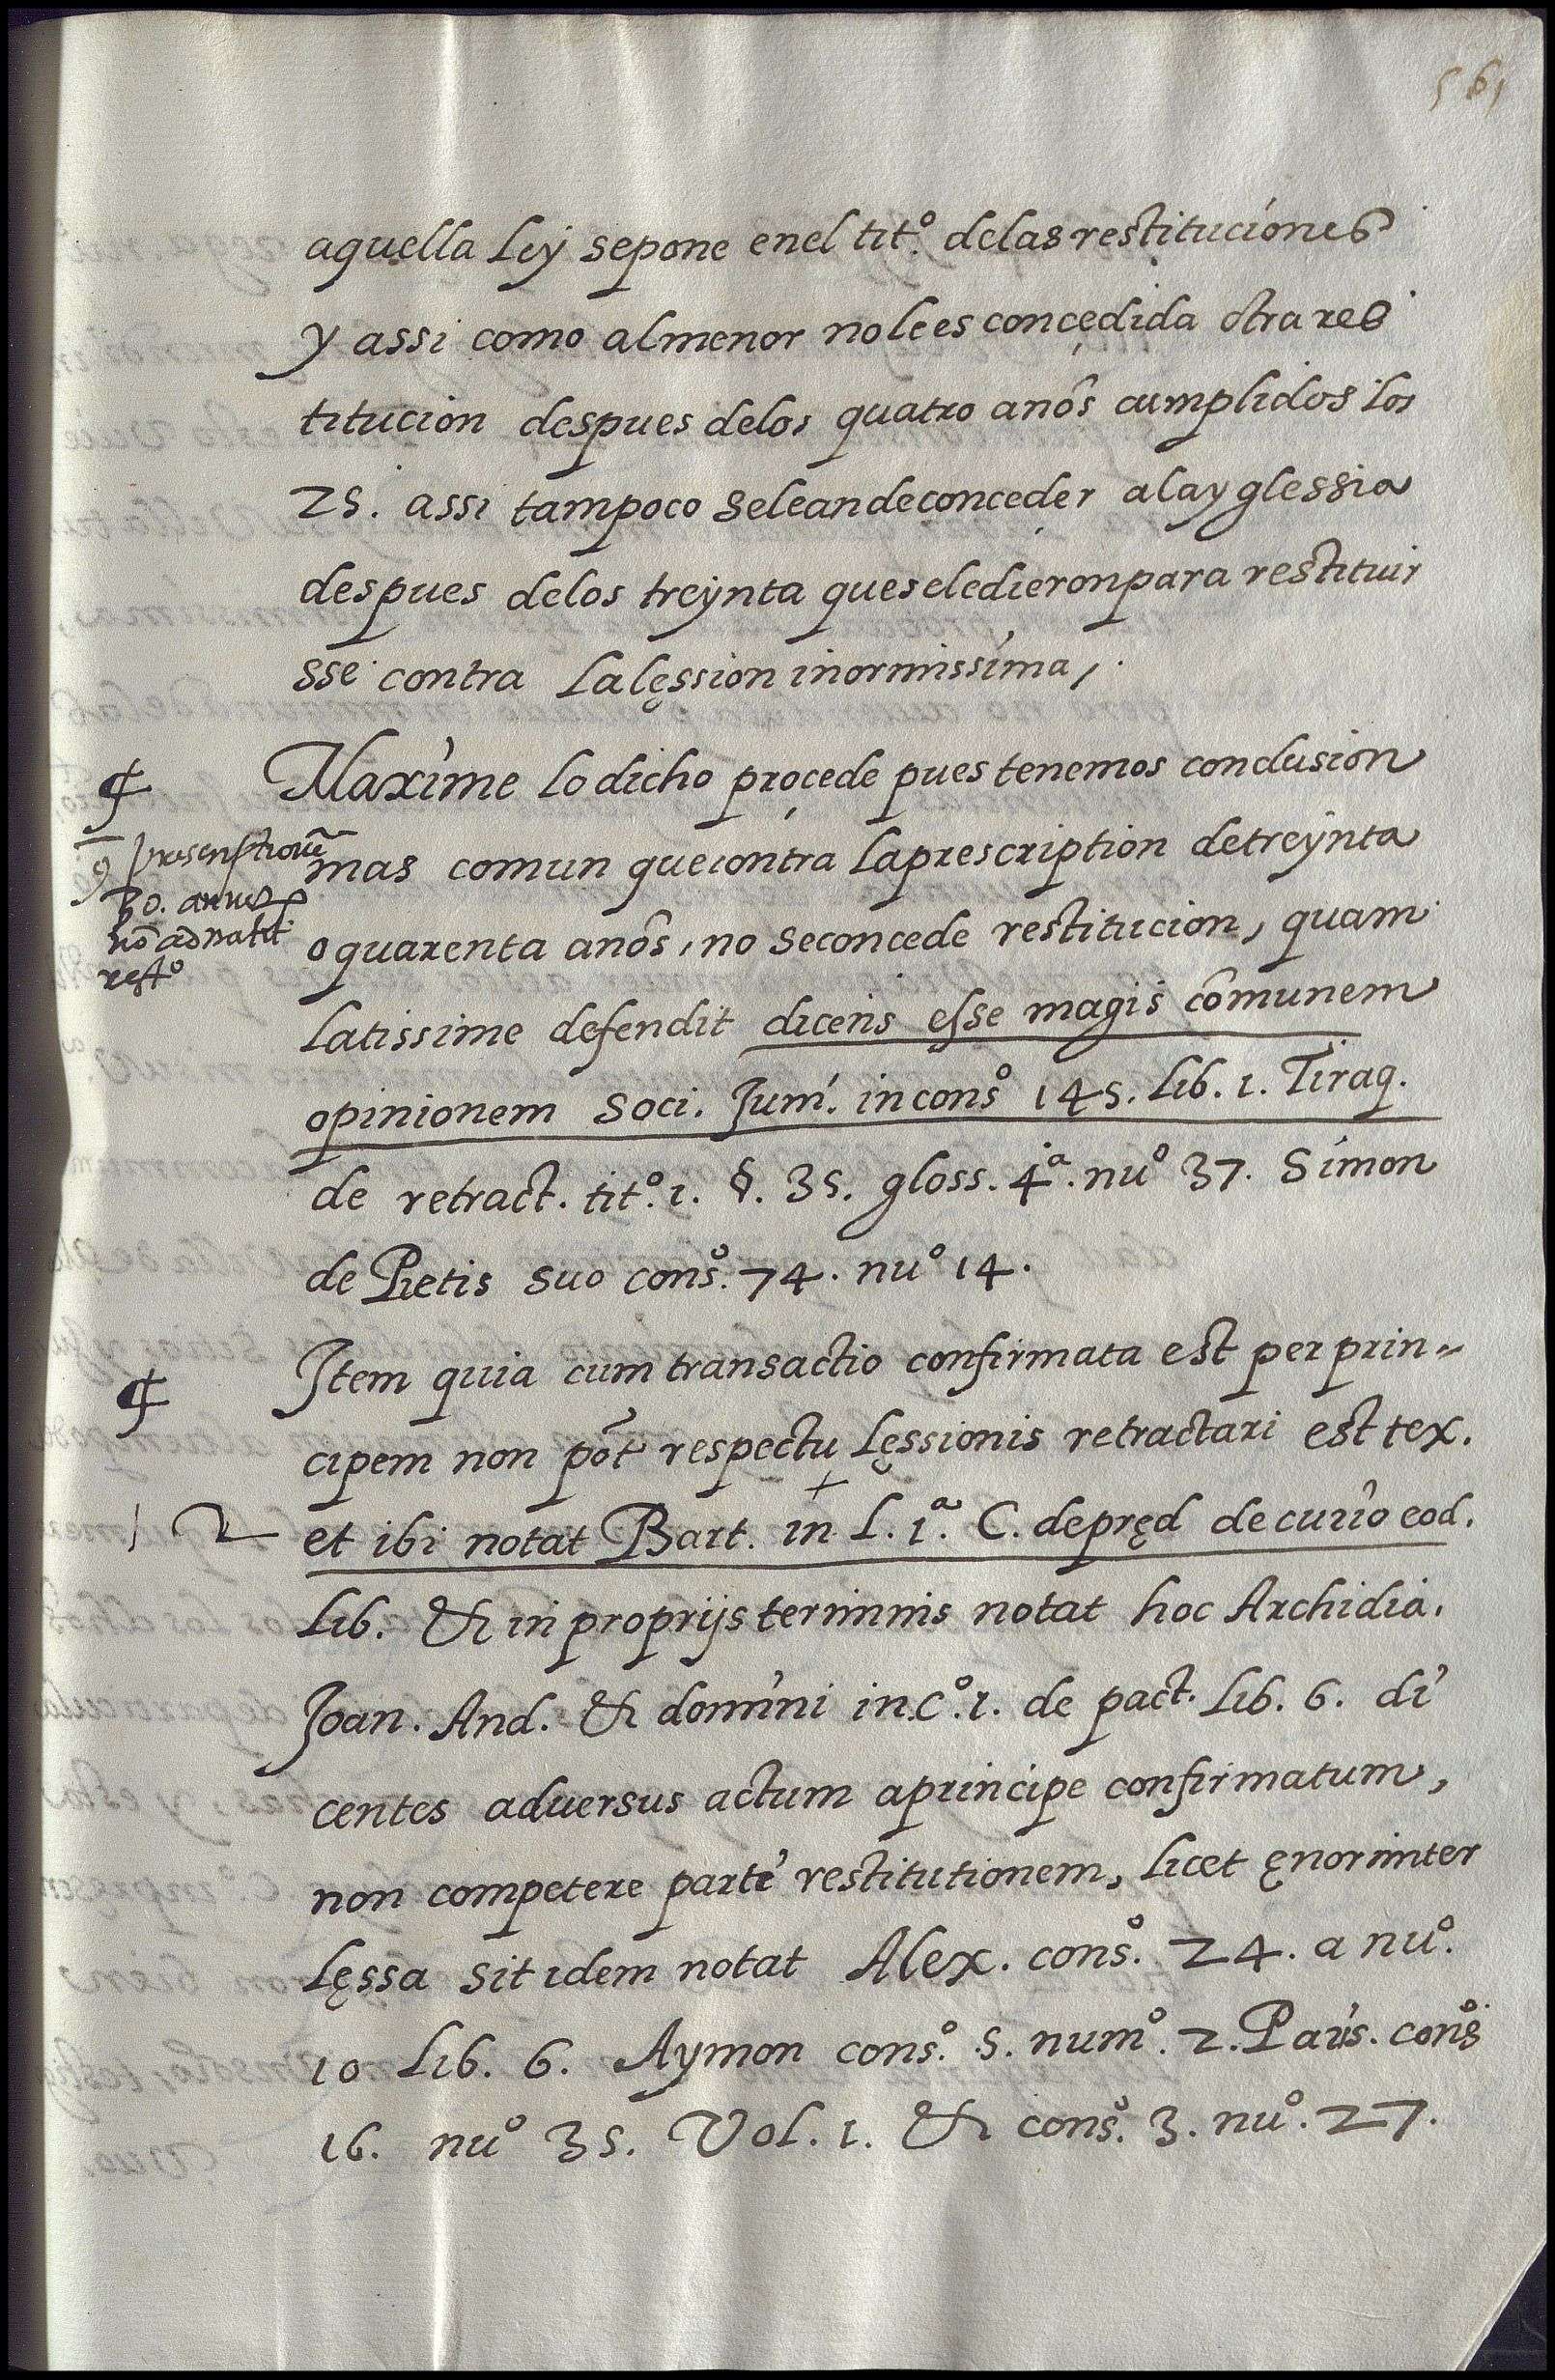 561
aquella Ley sepone enel titº. delas restituciones
y assi como almenor nolees concedida otra res
titucion despues delos quatro anôs cumplidos los
25. assi tampoco seleandeconceder alayglessia
despues delos treynta queseledieronpara restituir
sse contra Lalęssion inormissima,
Maxime lodicho procede pues tenemos conclusion
mas comun quecontra laprescription detreynta
oquarenta anôs, no seconcede restitucion, quam
latissime defendit dicens esse magis cômunem
opinionem Soci. Jum. incons.º 145. Lib. 1. Tiraq.
de retract. titº. 1. §. 35. gloss. 4ª. nuº 37. Simon
de Pretis suo consº. 74. nuº 14.
Item quia cum transactio confirmata est perprin-
cipem non pôt respectu lęssionis retractari est tex.
et ibi notat Bart. in L. 1ª. C. depręd decurio eod.
Lib. & in proprijs terminis notat hoc Archidia.
Joan. And. & domini in.cº. 1. de pact. Lib. 6. di
centes adversus actum aprincipe confirmatum,
non competere parte restitutionem, licet ęnormiter
lęssa sit idem notat Alex. consº. 24. a nuº.
10 Lib. 6. Aymon consº. 5. numº. 2. Paris. consº
16. nuº 35. Vol. 1. & consº. 3. nuº. 27.
30.
nõ
restº